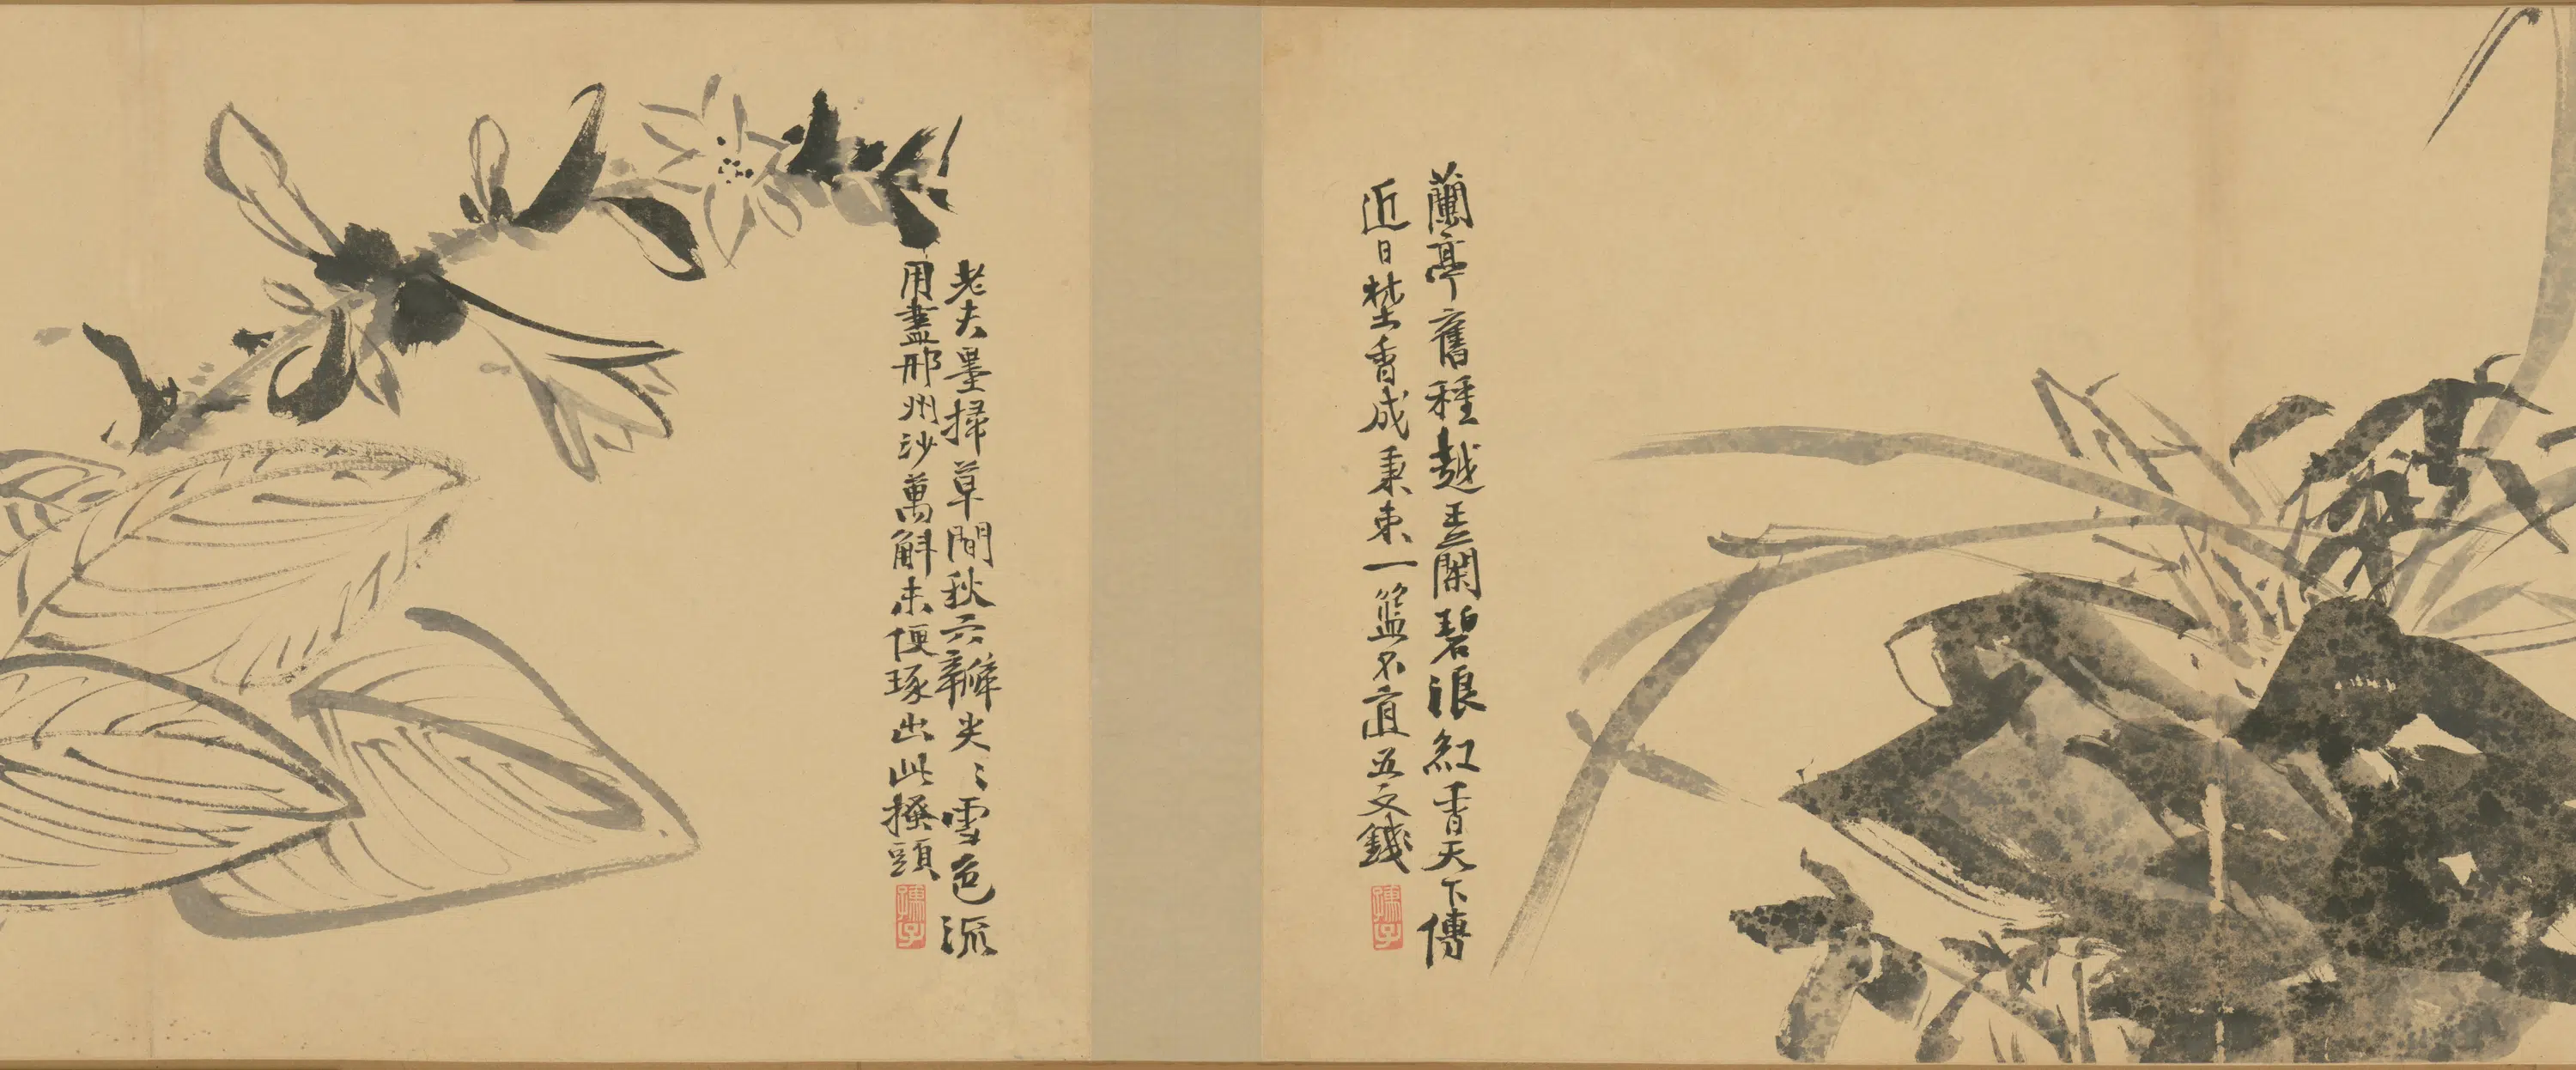 蘭亭舊種越王闌碧浪紅香天下傳
近日埜香成秉束一籃不直五文錢
老夫墨掃草間秋六瓣尖〻雪色流
用盡邢州沙萬斛未便琢出此搔頭